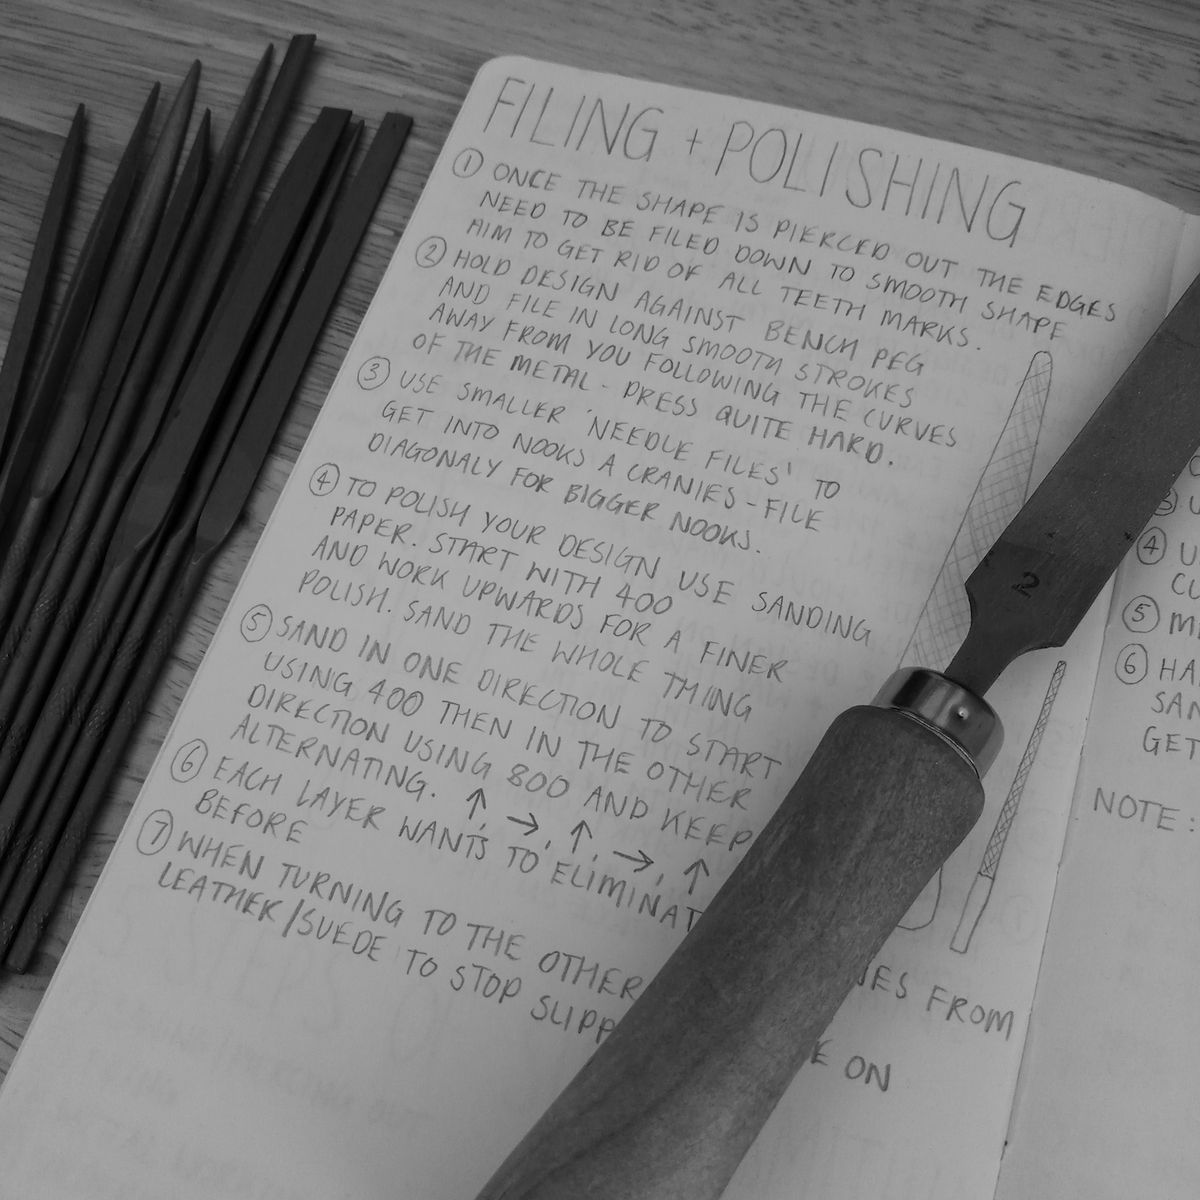 FILING + POLISHING
① ONCE THE SHAPE IS PIERCED OUT THE EDGES
NEED TO BE FILED DOWN TO SMOOTH SHAPE
AIM TO GET RID OF ALL TEETH MARKS.
② HOLD DESIGN AGAINST BENCH PEG
AND FILE IN LONG SMOOTH STROKES
AWAY FROM YOU FOLLOWING THE CURVES
OF THE METAL - PRESS QUITE HARD.
③ USE SMALLER 'NEEDLE FILES' TO
GET INTO NOOKS A CRANIES - FILE
DIAGONALY FOR BIGGER NOOKS.
④ TO POLISH YOUR DESIGN USE SANDING
PAPER. START WITH 400
AND WORK UPWARDS FOR A FINER
POLISH. SAND THE WHOLE THING
⑤ SAND IN ONE DIRECTION TO START
USING 400 THEN IN THE OTHER
DIRECTION USING 800 AND KEEP
ALTERNATING. ↑, →, ↑, →, ↑
⑥ EACH LAYER WANTS TO ELIMINAT
FROM
BEFORE
⑦ WHEN TURNING TO THE OTHER
ON
LEATHER/SUEDE TO STOP SLIPP
2
④
⑤
⑥
GET
NOTE: